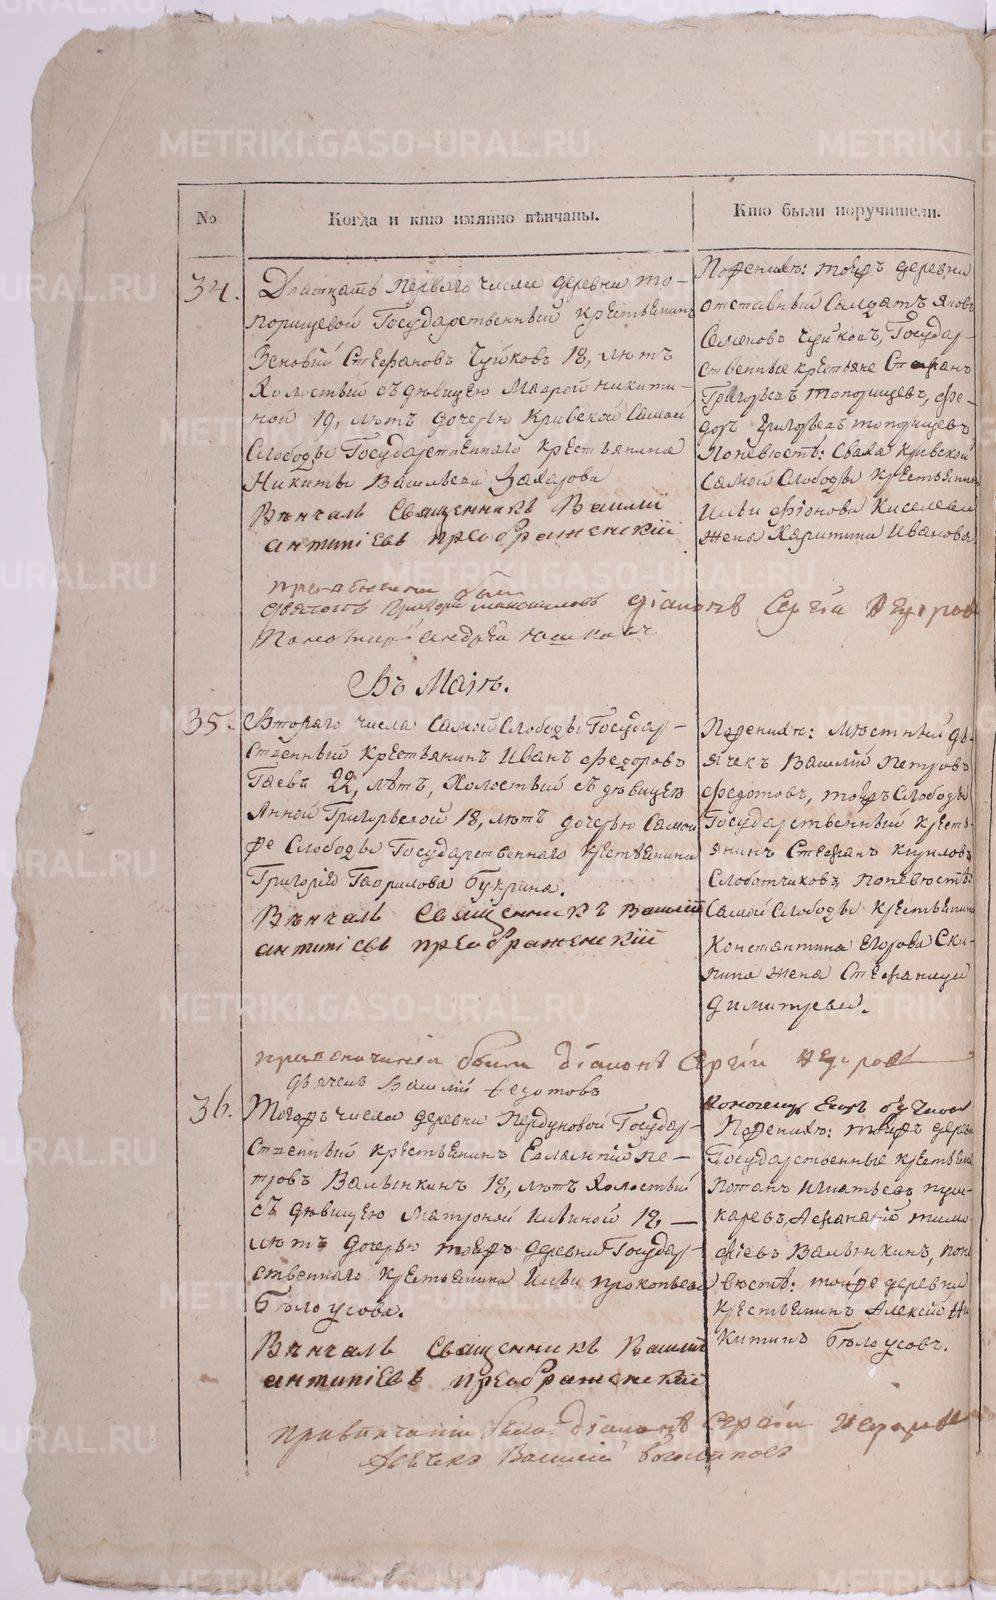 METRIKI.GASO-URAL.RU
No
Когда и кто имянно вѣнчаны.
Кто были поручители.
34.
Дватцать перваго числа деревни То-
порищевой Государственный крестьянинъ
Зеновий Стефановъ Чуйковъ 18, лѣтъ
Холостый съ дѣвицею Маврой Никити-
ной 19, лѣтъ дочерью Кривской самой
Слободы Государственнаго крестьянина
Никиты Васильева Захарова
Вѣнчалъ Священникъ Василй
антипіевъ преображенскій
Поженихѣ: тойжъ деревни
отставный Салдатъ Яковъ
Семеновъ Чуйковъ, Государ-
ственные крестьяне Стефанъ
Григорьевъ Топорищевъ, Фе-
доръ Григорьевъ Топорищевъ
Поневѣстѣ: Сваха Кривской
самой Слободы крестьянина
Ильи Фионова Киселева
жена Харитина Иванова
были
діаконъ Сергій
Пономарь Андрей
Въ Маіѣ.
35.
Втораго числа самой Слободы Государ-
ственный крестьянинъ Иванъ Федоровъ
Гаевъ 22, лѣтъ, Холостый съ дѣвицею
Анной Григорьевой 18, лѣтъ дочерью самой
же Слободы Государственнаго крестьянина
Григорія Гаврилова Букрина.
Вѣнчалъ Священникъ Василій
антипіевъ преображенскій
Поженихѣ: мѣстный дь-
ячекъ Василій Петровъ
Федотовъ, тойжъ Слободы
Государственный кресть-
янинъ Стефанъ
Слободчиковъ, поневѣстѣ:
самой Слободы крестьянина
Константина Егорова Ски-
пина жена Стефанида
Димитриева.
привенчании были діаконъ Сергій
дьячекъ Василій Федотовъ
36.
Тогожъ числа деревни Пердуновой Государ-
ственный крестьянинъ Евлампий Пе-
тровъ Валынкинъ 18, лѣтъ Холостый
съ дѣвицею Матроной Ильиной 18, —
лѣтъ дочерью тоежъ деревни Государ-
ственнаго крестьянина Ильи Прокопьева
Бѣлоусова.
Вѣнчалъ Священникъ Василій
антипіевъ преображенскій
Поженихѣ: тойжъ дерев
Государственные крестьяне
Потапъ Игнатьевъ Пуш-
каревъ, Афанасій Тимо-
фіевъ Валынкинъ, поне-
вѣстѣ: тойже деревни
крестьянинъ Алексѣй Ни-
китинъ Бѣлоусовъ.
привенчании были діаконъ Сергій
Василій